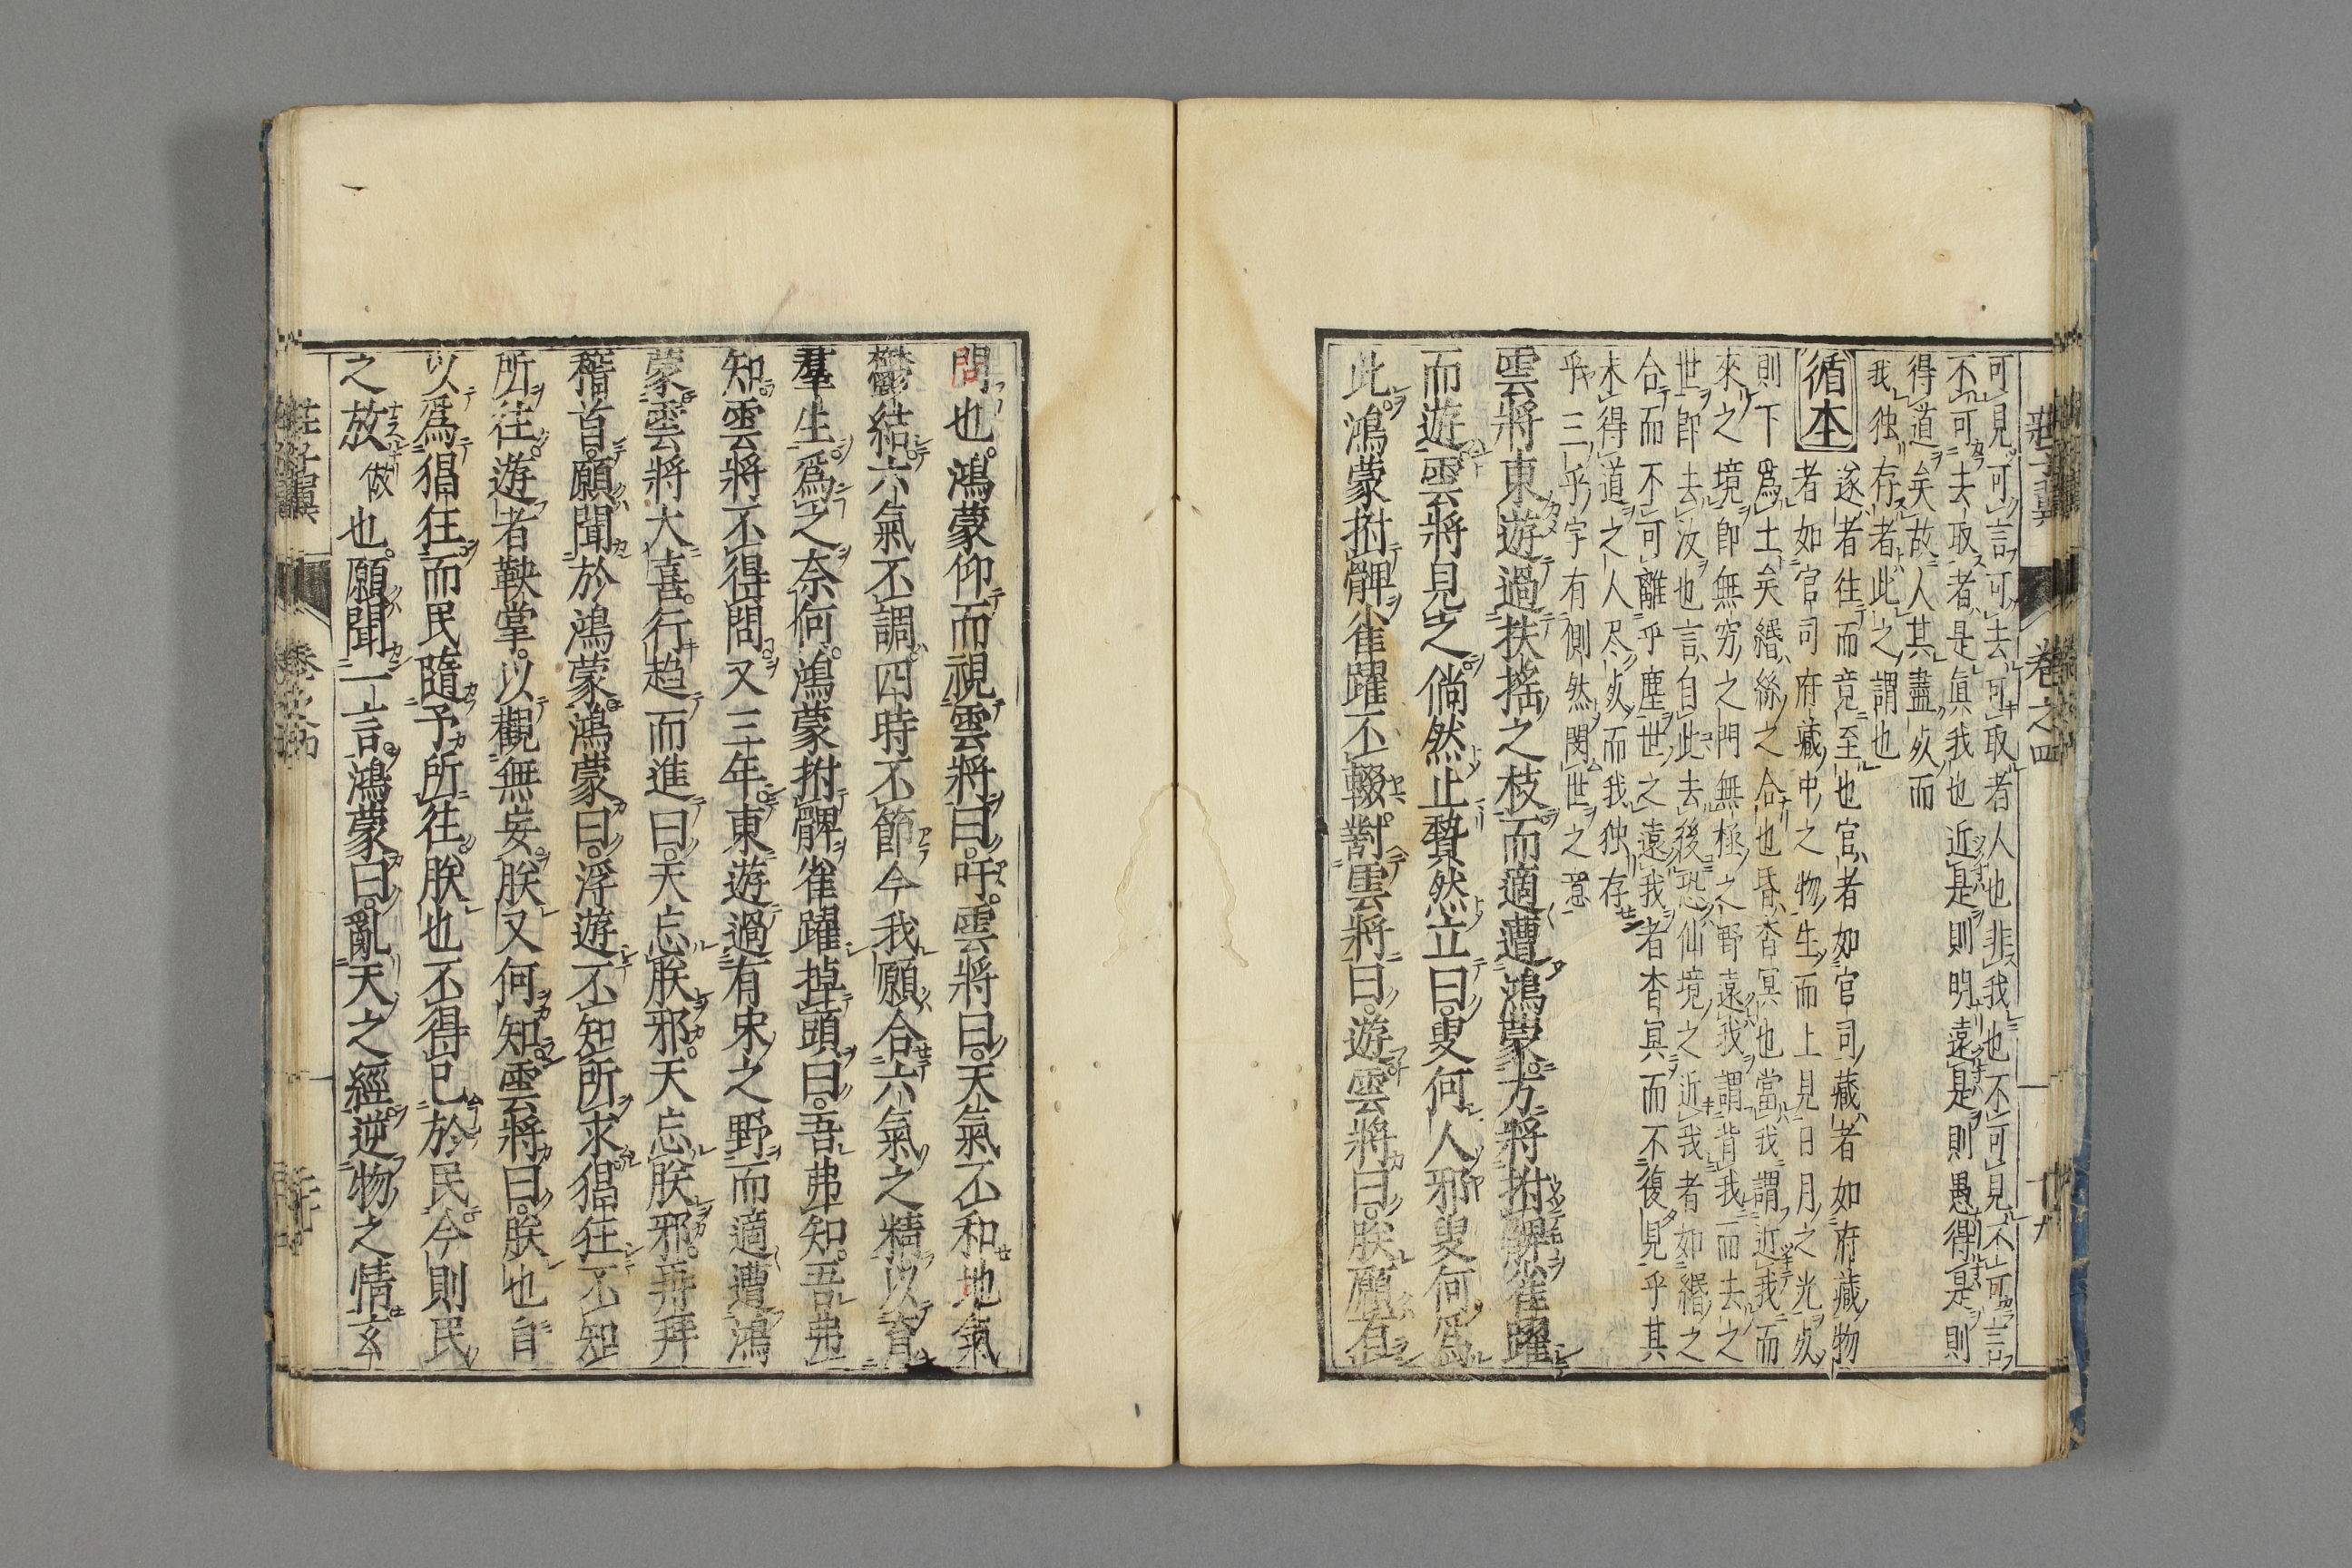 可見可言可去可取者人也非我也不可見不可言
不可去取者是眞我也近是則明遠是則愚得是則
得道矣故人其盡死而
我独存者此之謂也
循本
遂者往而竟至也官者如官司藏者如府藏物
者如官司府藏中之物生而上見日月之光死
則下爲土矣緡絲之合也昏杳冥也當我謂近我而
來之境即無穷之門無極之野遠我謂背我而去之
世即去汝也言自此去後恐仙境之近我者如緡之
合而不可離乎塵世之遠我者杳冥而不復見乎其
未得道之人尽死而我独存
乎三乎字有側然閔世之意
雲將東遊過扶摇之枝而適遭鴻蒙方將拊髀雀躍
而遊雲將見之倘然止贄然立曰叟何人邪叟何爲
此鴻蒙拊髀雀躍不輟對雲將曰遊雲將曰朕願有
莊子翼 卷之四 十九
問也鴻蒙仰而視雲將曰吁雲將曰天氣不和地氣
鬱結六氣不調四時不節今我願合六氣之精以育
羣生爲之奈何鴻蒙拊髀雀躍掉頭曰吾弗知吾弗
知雲將不得問又三年東遊過有宋之野而適遭鴻
蒙雲將大喜行趋而進曰天忘朕邪天忘朕邪再拜
稽首願聞於鴻蒙鴻蒙曰浮遊不知所求猖狂不知
所往遊者鞅掌以觀無妄朕又何知雲將曰朕也自
以爲猖狂而民隨予所往朕也不得已於民今則民
之放倣也願聞一言鴻蒙曰亂天之經逆物之情玄